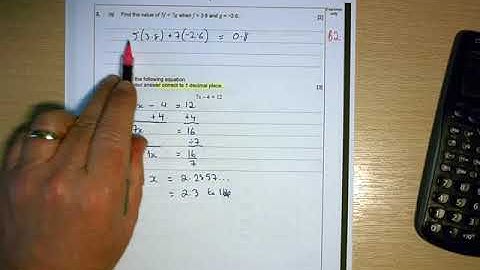 (a) Find the value of 5f + 7g when f = 3·8 and g = −2·6. [2]
5(3.8) + 7(-2.6) = 0.8 B2
the following equation.
correct to 1 decimal place. [3]
7x − 4 = 12
x - 4 = 12
+4 +4
7x = 16
÷7
x = 16
7
x = 2.2857...
= 2.3 to 1dp